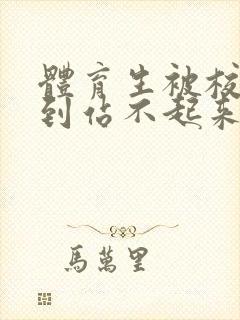 體育生被校
到站不起來
馬萬里